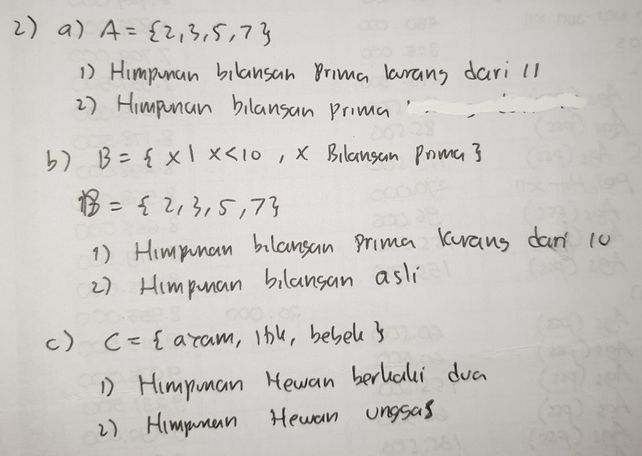 2) a) A = {2,3,5,7}
1) Himpunan bilangan prima kurang dari 11
2) Himpunan bilangan prima
b) B = { x | x<10 , x Bilangan prima }
B = { 2,3,5,7}
1) Himpunan bilangan prima kurang dari 10
2) Himpunan bilangan asli
c) C = { ayam, itik, bebek }
1) Himpunan Hewan berkaki dua
2) Himpunan Hewan unggas